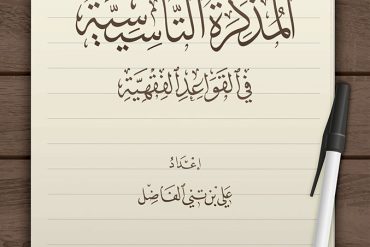 المُذَكِّرَةُ التَّأْسِيسِيَّةُ
فِي القَوَاعِدِ الفِقْهِيَّةِ
إعْدَادُ
عَلِيّ بْن تَنِي الفَاضِل